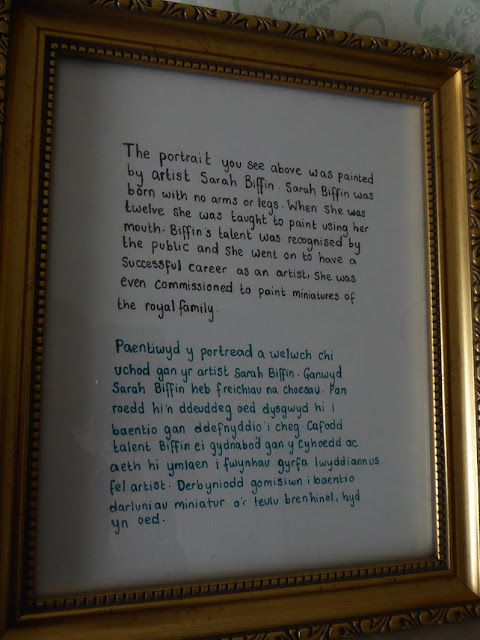 The portrait you see above was painted
by artist Sarah Biffin. Sarah Biffin was
born with no arms or legs. When she was
twelve she was taught to paint using her
mouth. Biffin's talent was recognised by
the public and she went on to have a
successful career as an artist, she was
even commissioned to paint miniatures of
the royal family.
Paentiwyd y portread a welwch chi
uchod gan yr artist Sarah Biffin. Ganwyd
Sarah Biffin heb freichiau na choesau. Pan
roedd hi'n ddeuddeg oed dysgwyd hi i
baentio gan ddefnyddio'i cheg. Cafodd
talent Biffin ei gydnabod gan y Cyhoedd ac
aeth hi ymlaen i fwynhau gyrfa lwyddiannus
fel artist. Derbyniodd gomisiwn i baentio
darluniau miniatur o'r teulu brenhinol, hyd
yn oed.